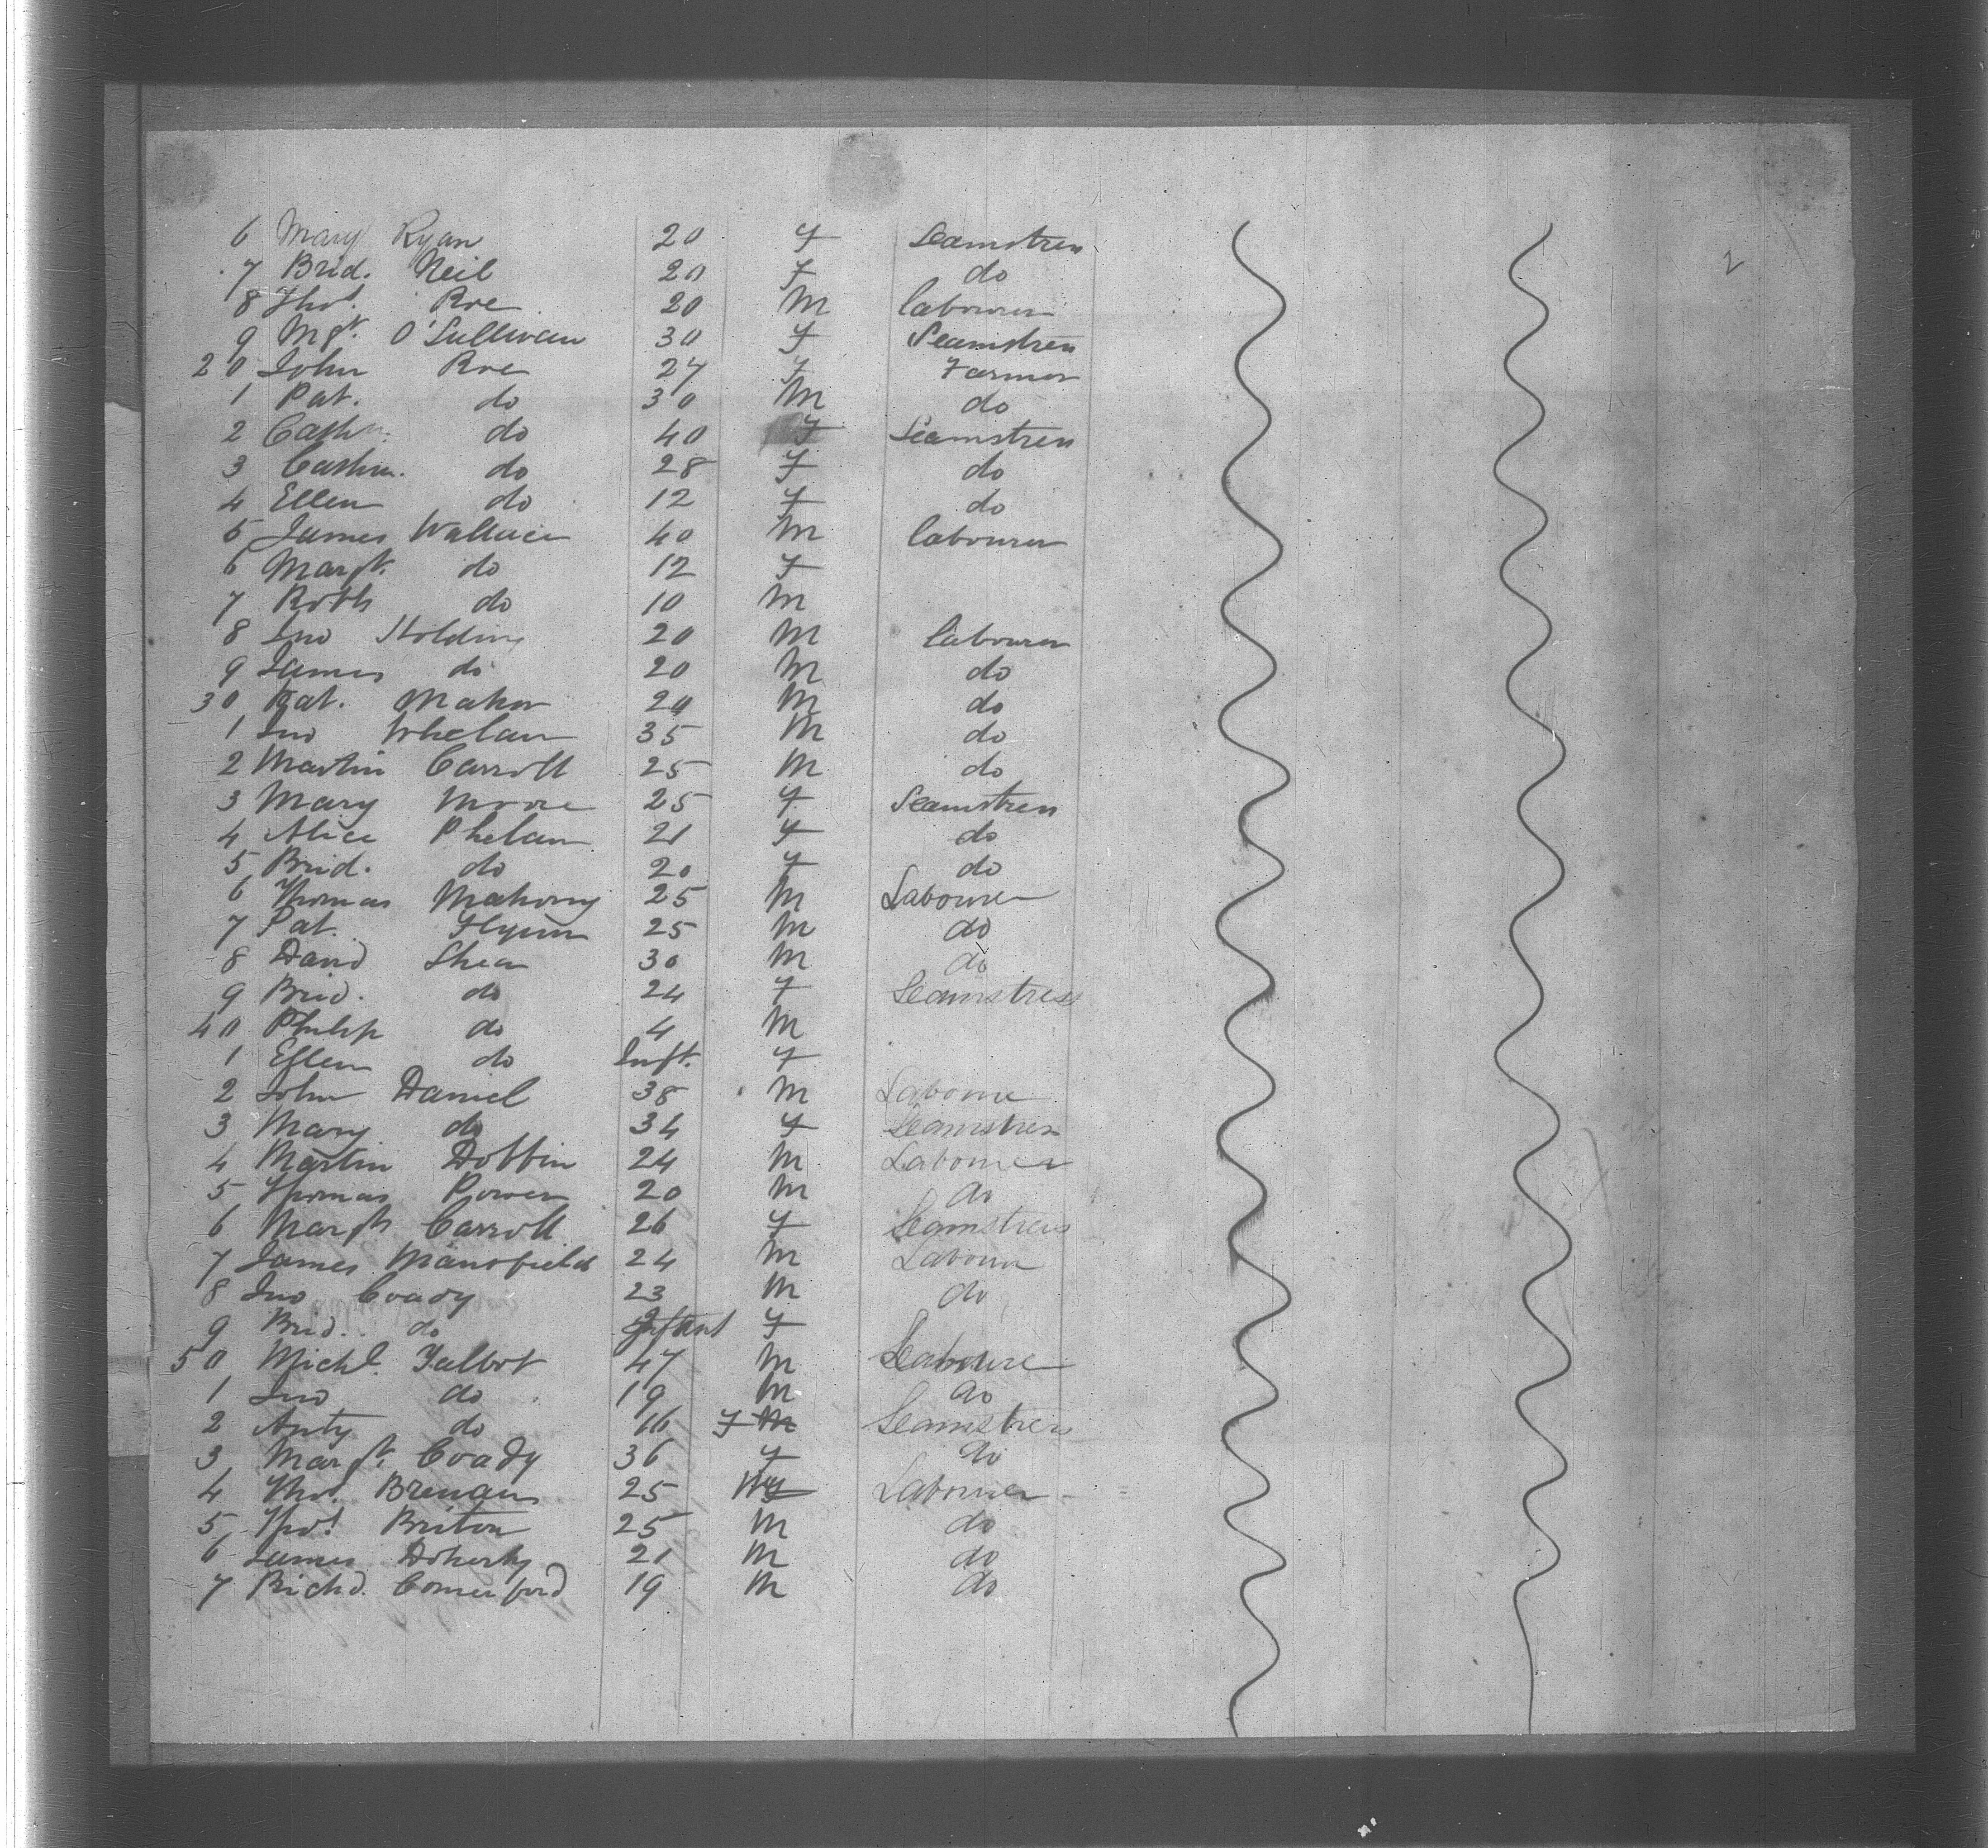 2
6 Mary Ryan 20 F Seamstress
7 Brid. Neil 20 F do
8 Thos. Roe 20 M labourer
9 Mgt. O'Sullivan 30 F Seamstress
20 John Roe 27 F Farmer
1 Pat. do 30 M do
2 Cathn. do 40 F Seamstress
3 Cathn. do 28 F do
4 Ellen do 12 F do
5 James Wallace 40 M labourer
6 Margt. do 12 F
7 Robt do 10 M
8 Jno Holding 20 M labourer
9 James do 20 M do
30 Pat. Maher 20 M do
1 Jno Whelan 35 M do
2 Martin Carroll 25 M do
3 Mary Moore 25 F Seamstress
4 Alice Phelan 21 F do
5 Brid. do 20 F do
6 Thomas Mahony 25 M Labourer
7 Pat. Flynn 25 M do
8 David Shea 30 M do
9 Brid. do 24 F Seamstress
40 Philip do 4 M
1 Ellen do Inft. F
2 John Daniel 38 M Laboure
3 Mary do 34 F Seamstress
4 Martin Dobbin 24 M Labourer
5 Thomas Power 20 M do
6 Margt Carroll 26 F Seamstress
7 James Mansfield 24 M Labour
8 Jno Coady 23 M do
9 Brid. do Infant F
50 Michl. Talbot 47 M Laboure
1 Jno do 19 M do
2 Anty do 16 F M Seamstress
3 Margt. Coady 36 F do
4 Thos. Brenan 25 M Labourer
5 Thos Briton 25 M do
6 James Doherty 21 M do
7 Richd. Comerford 19 M do